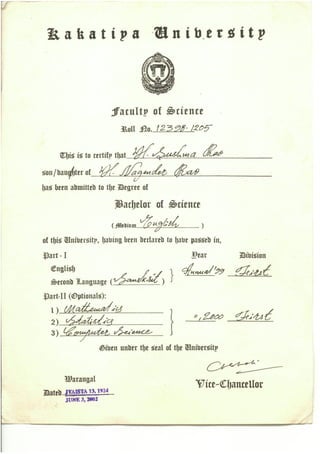 Kakatiya University
Faculty of Science
Roll No. 12398-1205
This is to certify that H. Sushma Rao
son/daughter of H. Nagender Rao
has been admitted to the Degree of
Bachelor of Science
( Medium English )
of this University, having been declared to have passed in,
Part - I Year Division
English
Second Language ( Sanskrit ) Annual '99 First
Part-II (Optionals):
1) Mathematics
2) Statistics ", 2000 First
3) Computer Science
Given under the seal of the University
Warangal
Vice-Chancellor
Dated JYAISTA 13, 1924
JUNE 3, 2002